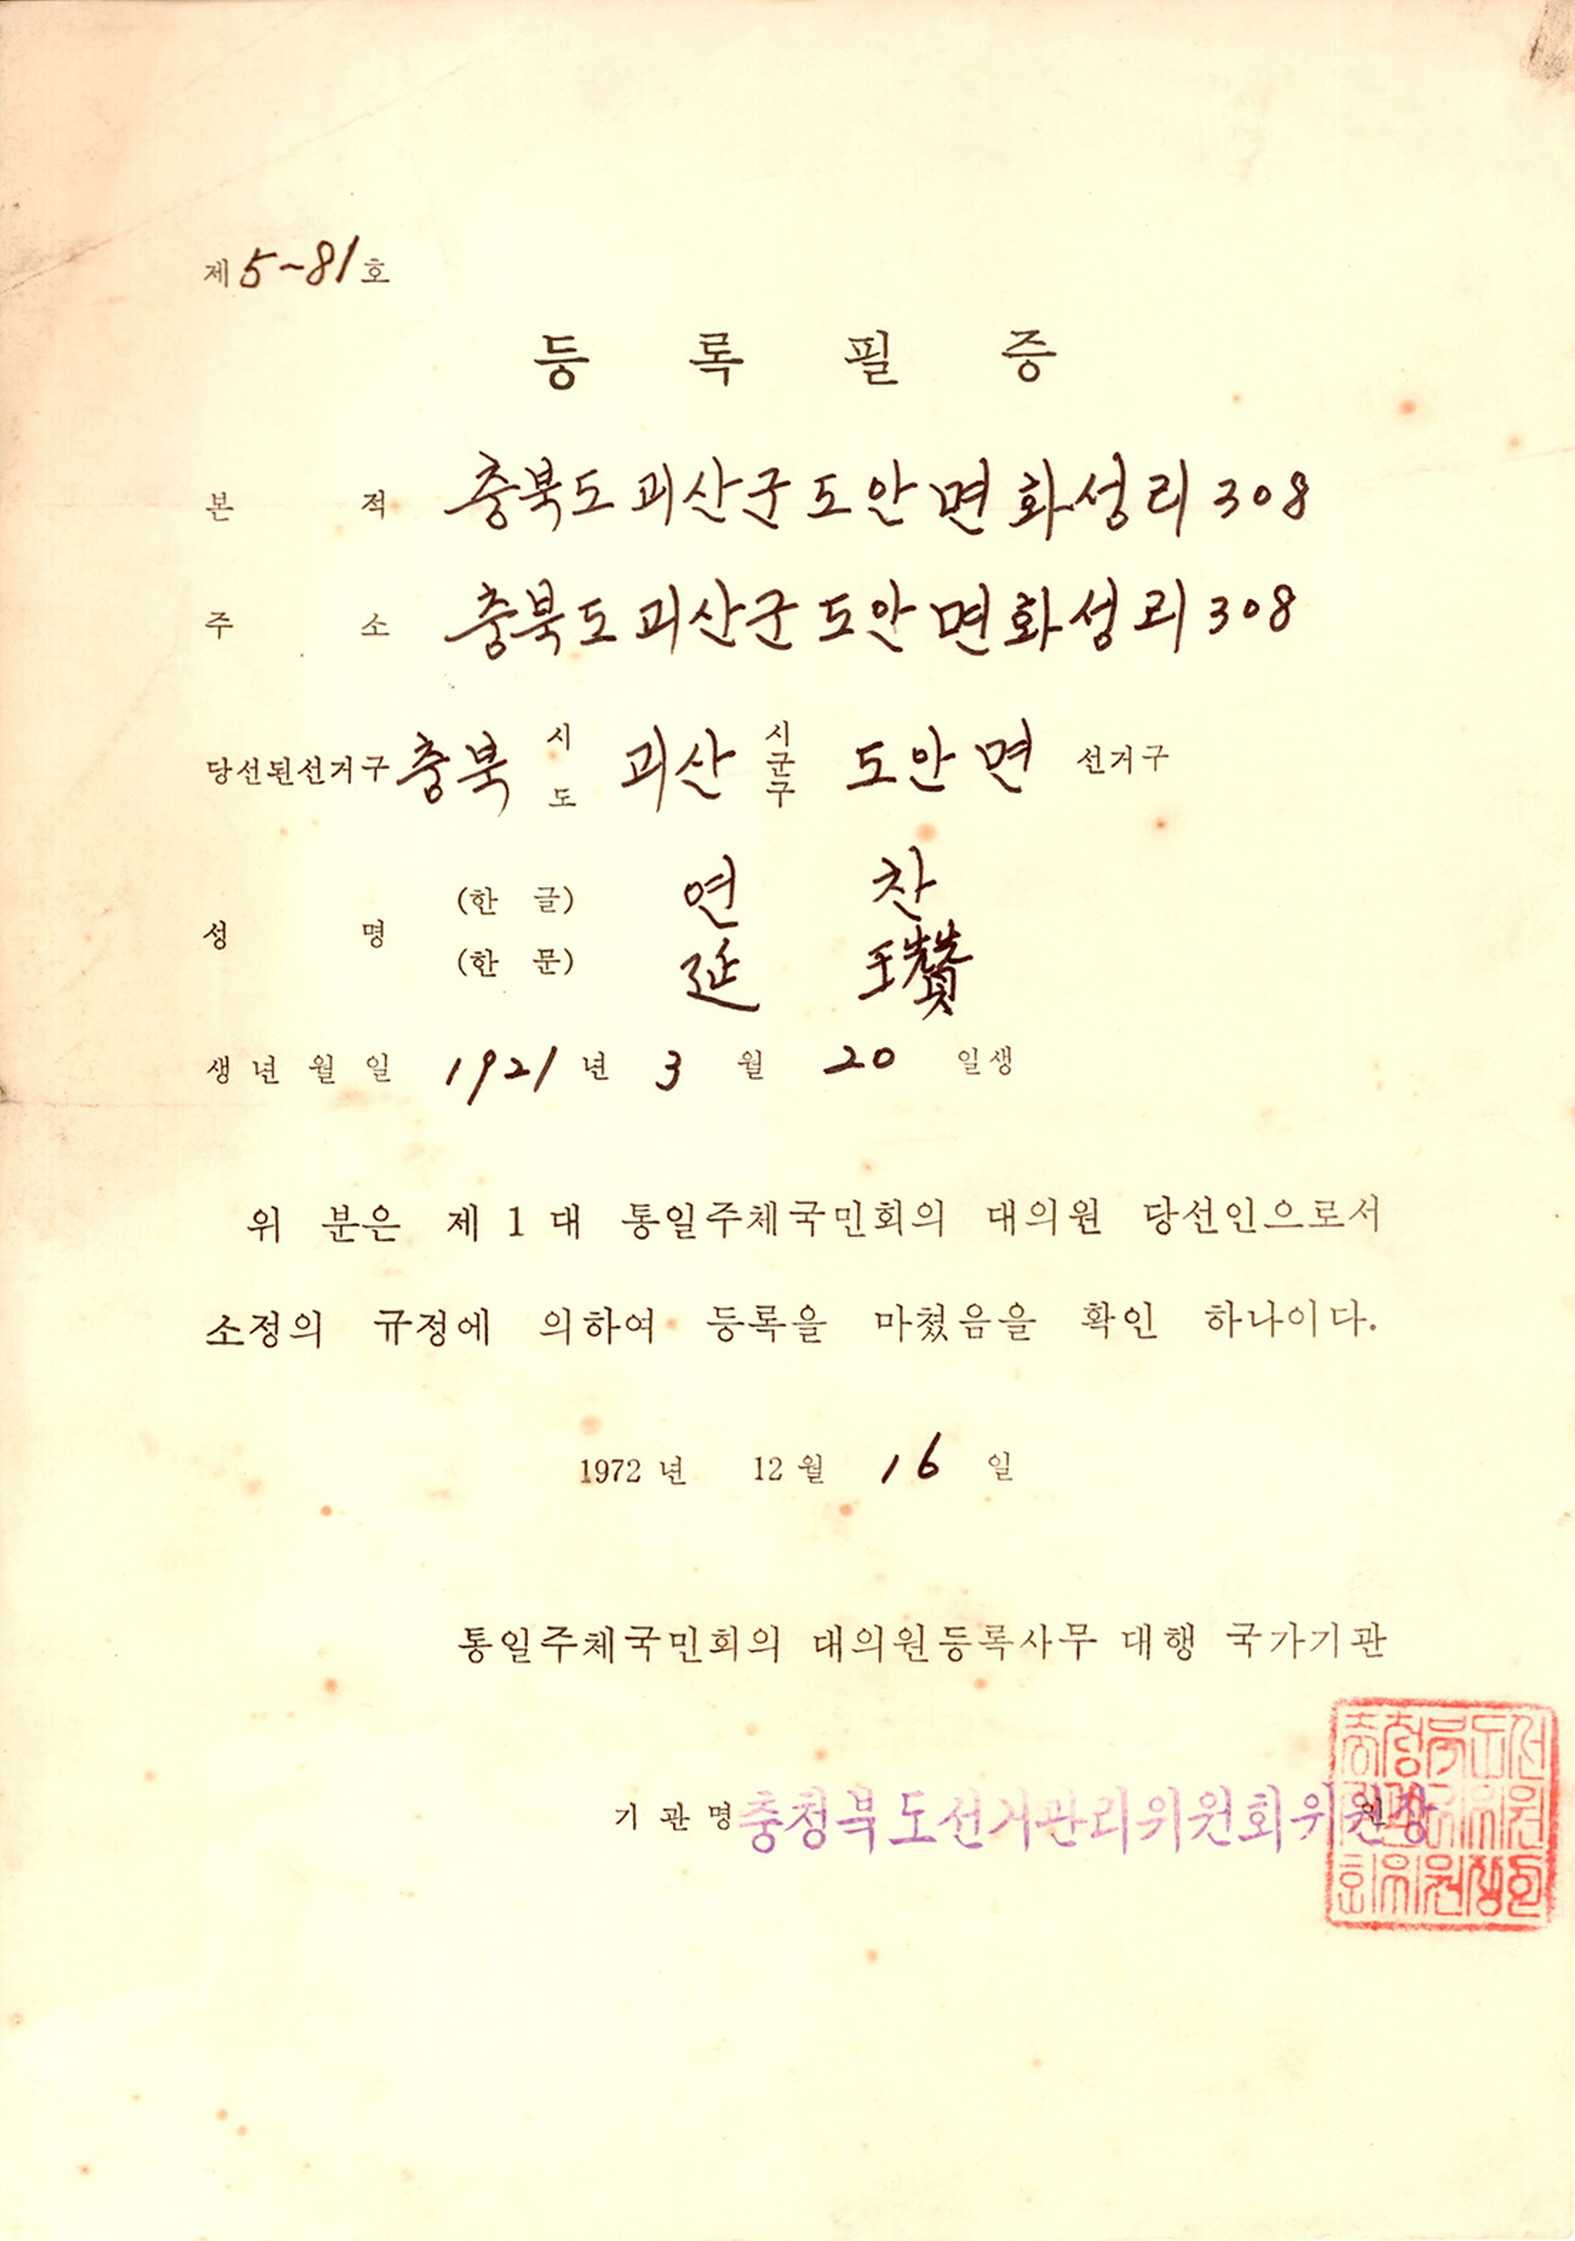 제 5-81 호
등록필증
본적 충북도 괴산군 도안면 화성리 308
주소 충북도 괴산군 도안면 화성리 308
당선된선거구 충북 시 도 괴산 시 군 구 도안면 선거구
성명 (한글) 연 찬
(한문) 延 瓚
생년월일 1921년 3월 20일생
위 분은 제1대 통일주체국민회의 대의원 당선인으로서
소정의 규정에 의하여 등록을 마쳤음을 확인 하나이다.
1972년 12월 16일
통일주체국민회의 대의원등록사무 대행 국가기관
기관명 충청북도선거관리위원회위원장 인
충청북도선
거관리위원
회위원장인